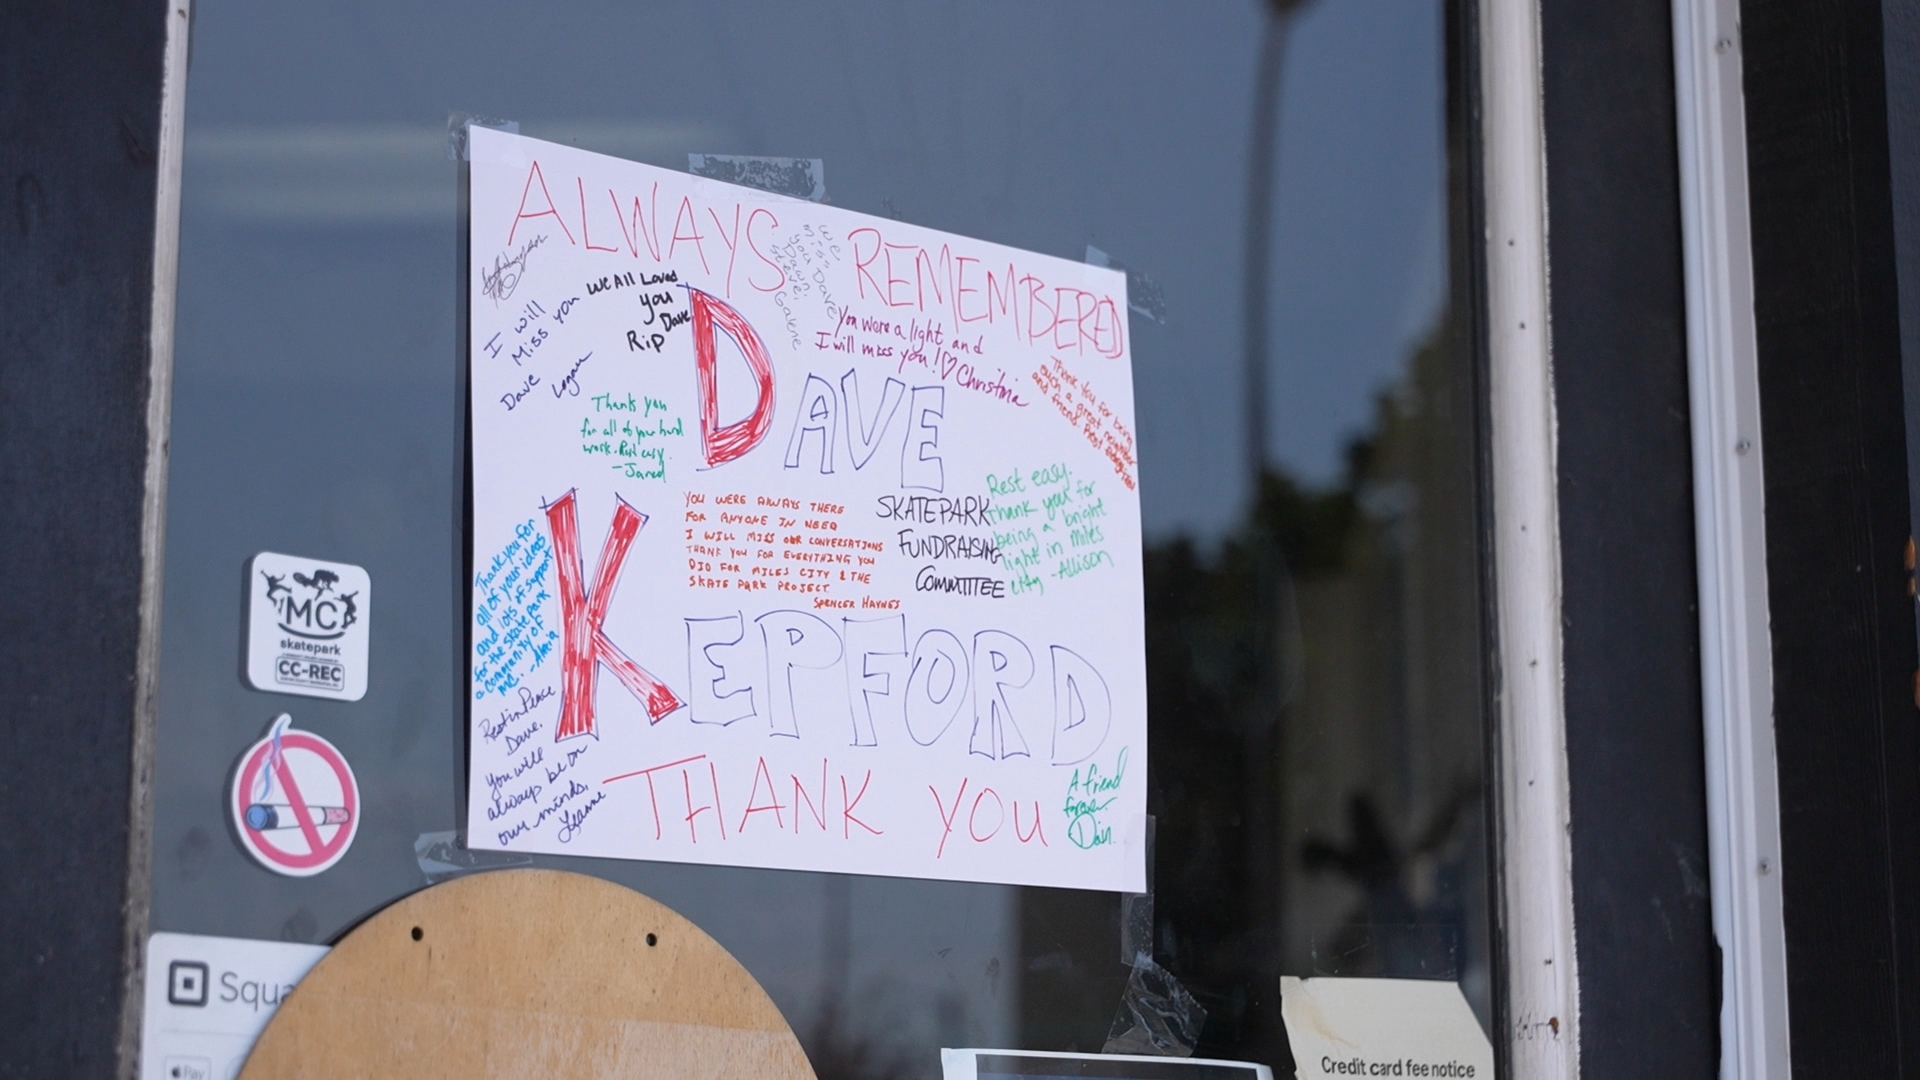 ALWAYS REMEMBERED
I will
Miss you
Dave
Logan
We All Loved
you
Dave
Rip
We
Miss
you Dave
Dawn,
Steve,
You were a light and
I will miss you! ♡ Christina
Thank you for being
such a great neighbor
and friend. Rest
Thank you
for all of your hard
work. Rest easy.
-Jared
DAVE
YOU WERE ALWAYS THERE
FOR ANYONE IN NEED
I WILL MISS OUR CONVERSATIONS
THANK YOU FOR EVERYTHING YOU
DID FOR MILES CITY & THE
SKATE PARK PROJECT
SPENCER HAYNES
SKATEPARK
FUNDRAISING
COMMITTEE
Rest easy.
thank you for
being a bright
light in miles
city -Allison
Thank you for
all of your ideas
and lots of support
for the skate park
a community of
MC.
KEPFORD
Rest in Peace
Dave.
You will
always be on
our minds,
Leanne
THANK YOU
A friend
forever
MC
skatepark
CC-REC
Squa
Pay
Credit card fee notice